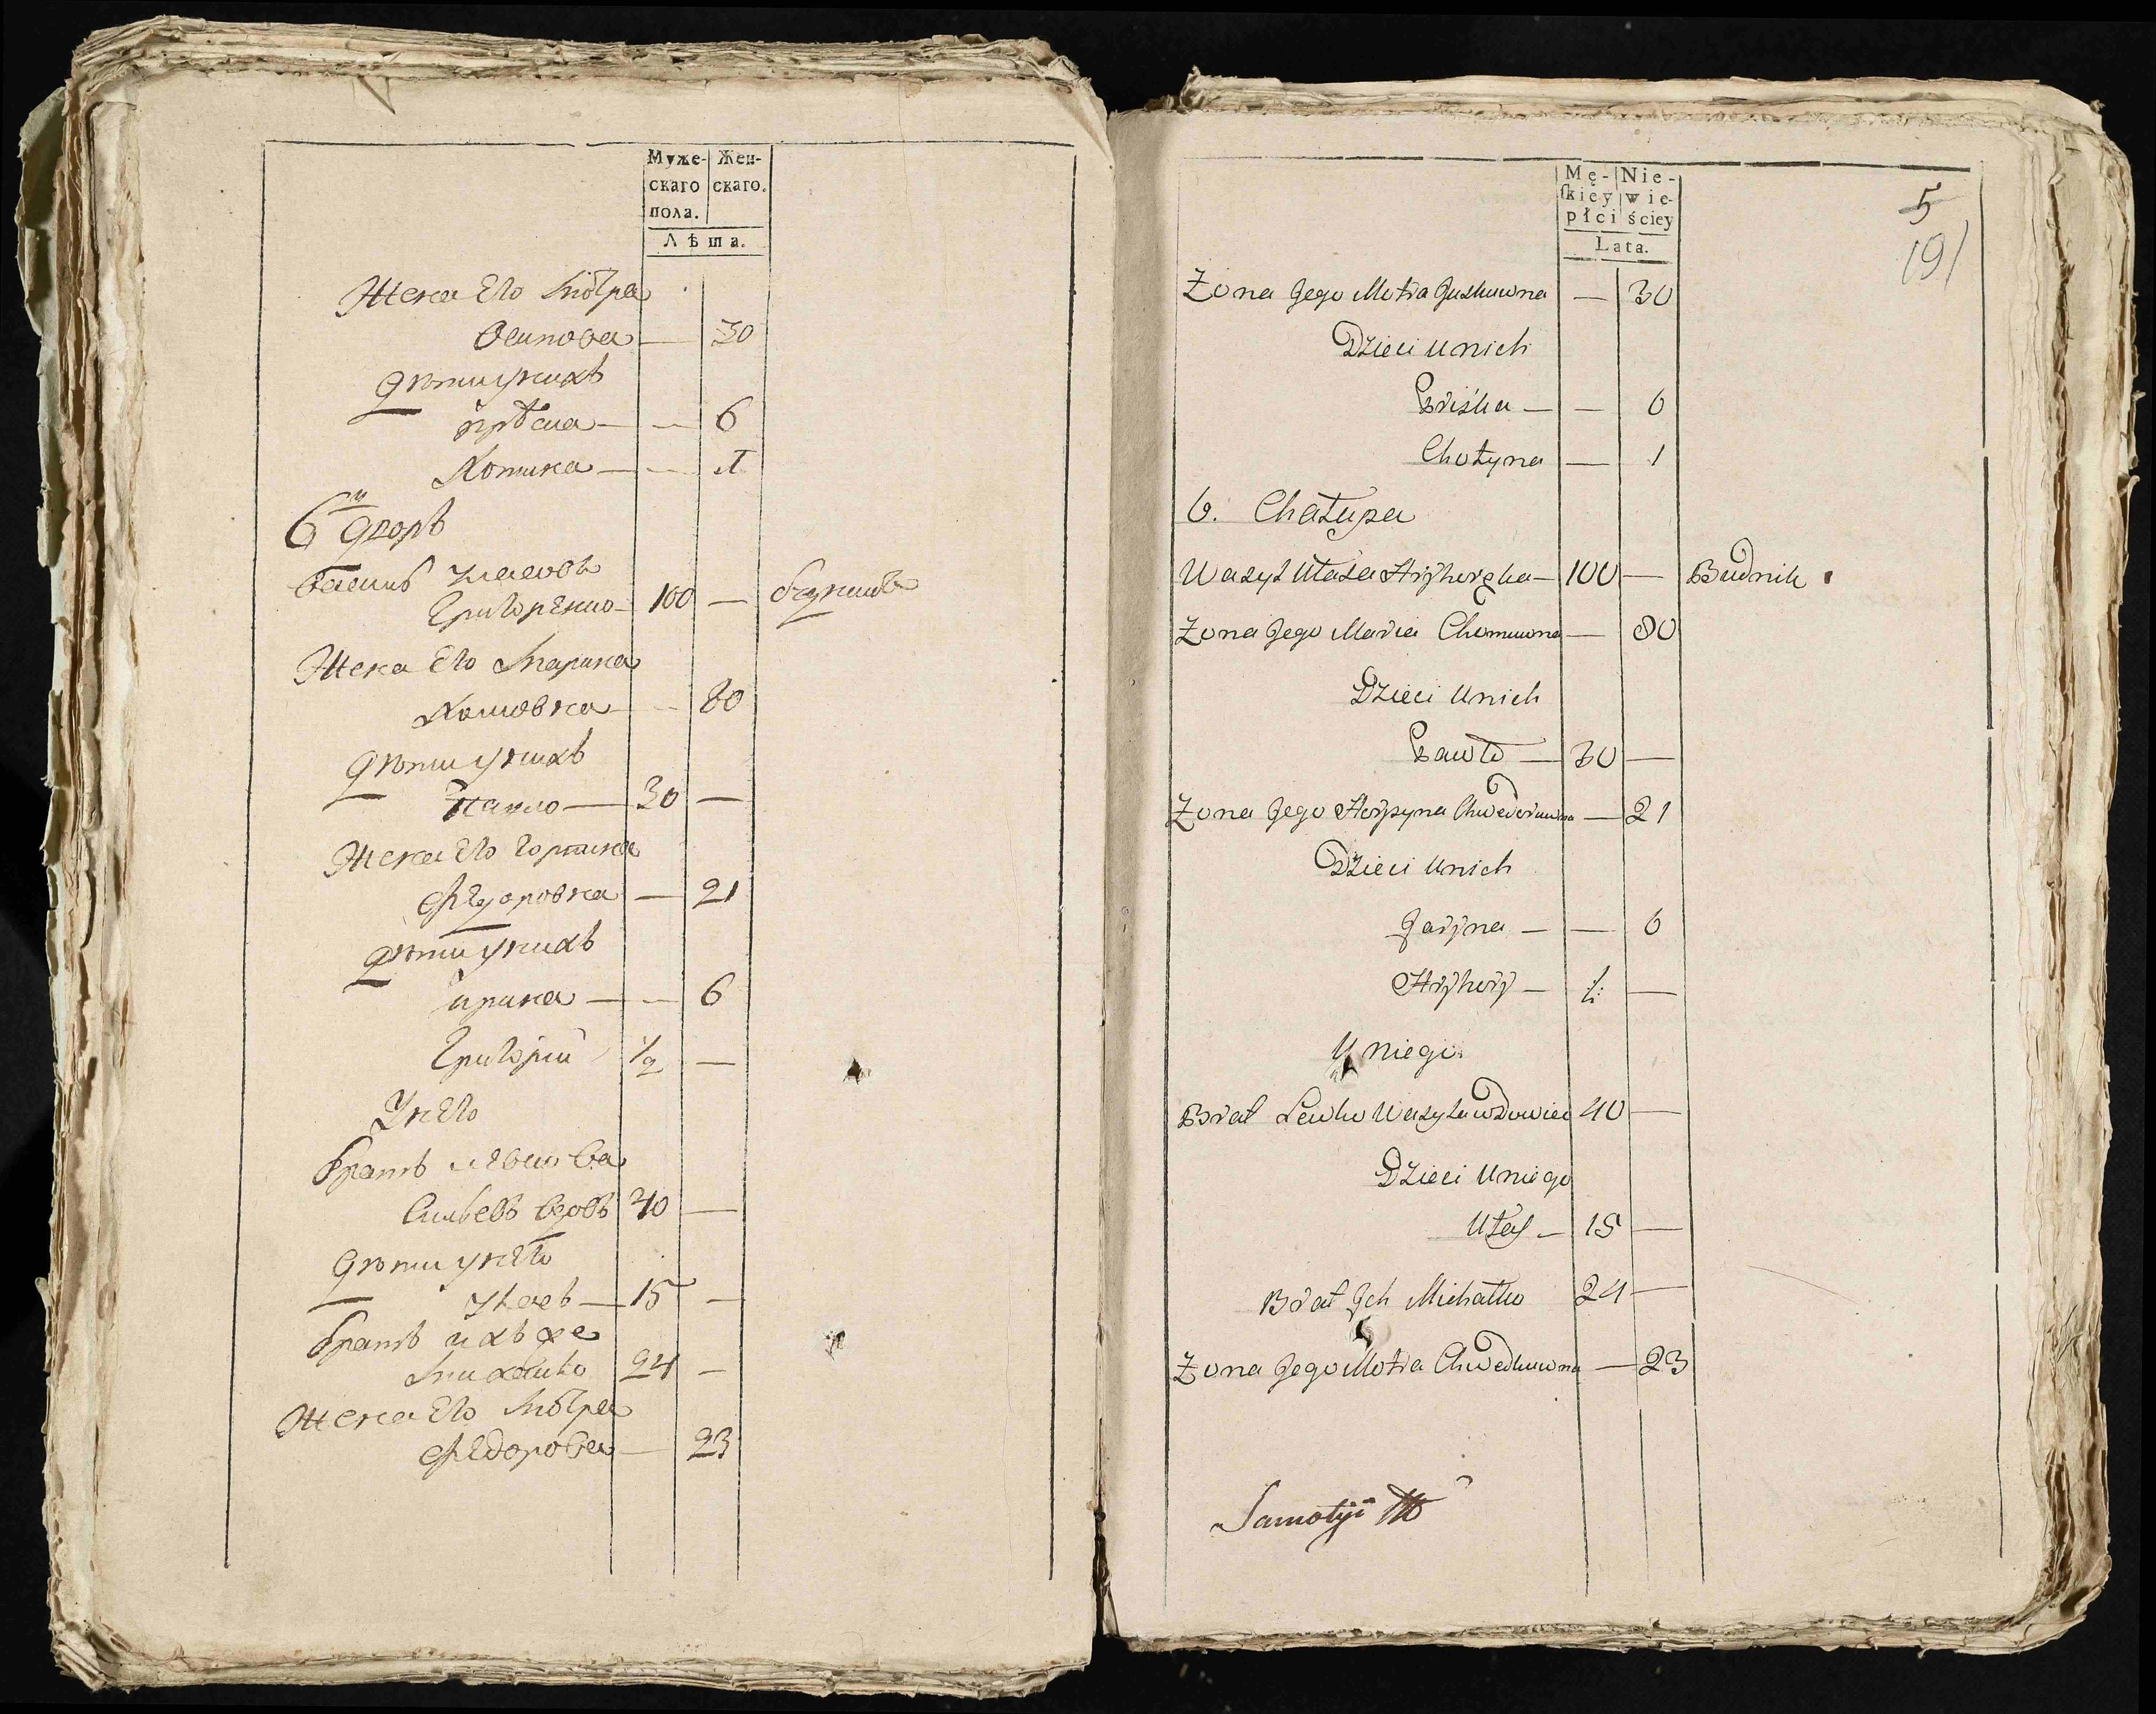 Муже-
скаго
пола.
Жен-
скаго.
Лѣта.
Жена Его Мотра
Осипова — 30
Дѣти у нихъ
Прѣска — — 6
Хотина — — 1
6й дворъ
Василь Уласовъ
Григоренко — 100 — будникъ
Жена Его Марина
Хомовна — — 80
Дѣти у нихъ
Павло — 30 —
Жена Его Горпина
Федоровна — 21
Дѣти у нихъ
Ирина — — 6
Григорій 1/2 —
У него
братъ Левко Ва
сильевъ вдовъ 40 —
Дѣти у него
Улас — 15 —
братъ ихъ же
Михайло 24 —
Жена Его Мотра
Федорова — 23
Mę-
skiéy
płci
Nie-
wie-
ściey
Lata.
5
191
Zona Jego Motra Juskuwna — 30
Dzieci u nich
Priśka — — 6
Chotyna — 1
6. Chałupa
Wasyl Ułasa Hryhorenka — 100 — Budnik
Zona Jego Maria Chomuwna — 80
Dzieci u nich
Pawło — 30 —
Zona Jego Horpyna Chwedoruwna — 21
Dzieci u nich
Jaryna — — 6
Hryhory — 1/2 —
U niego
Brat Lewko Wasyla wdowiec 40 —
Dzieci u niego
Ułas — 15 —
Brat Ich Michałko 24 —
Zona Jego Motra Chwedkuwna — 23